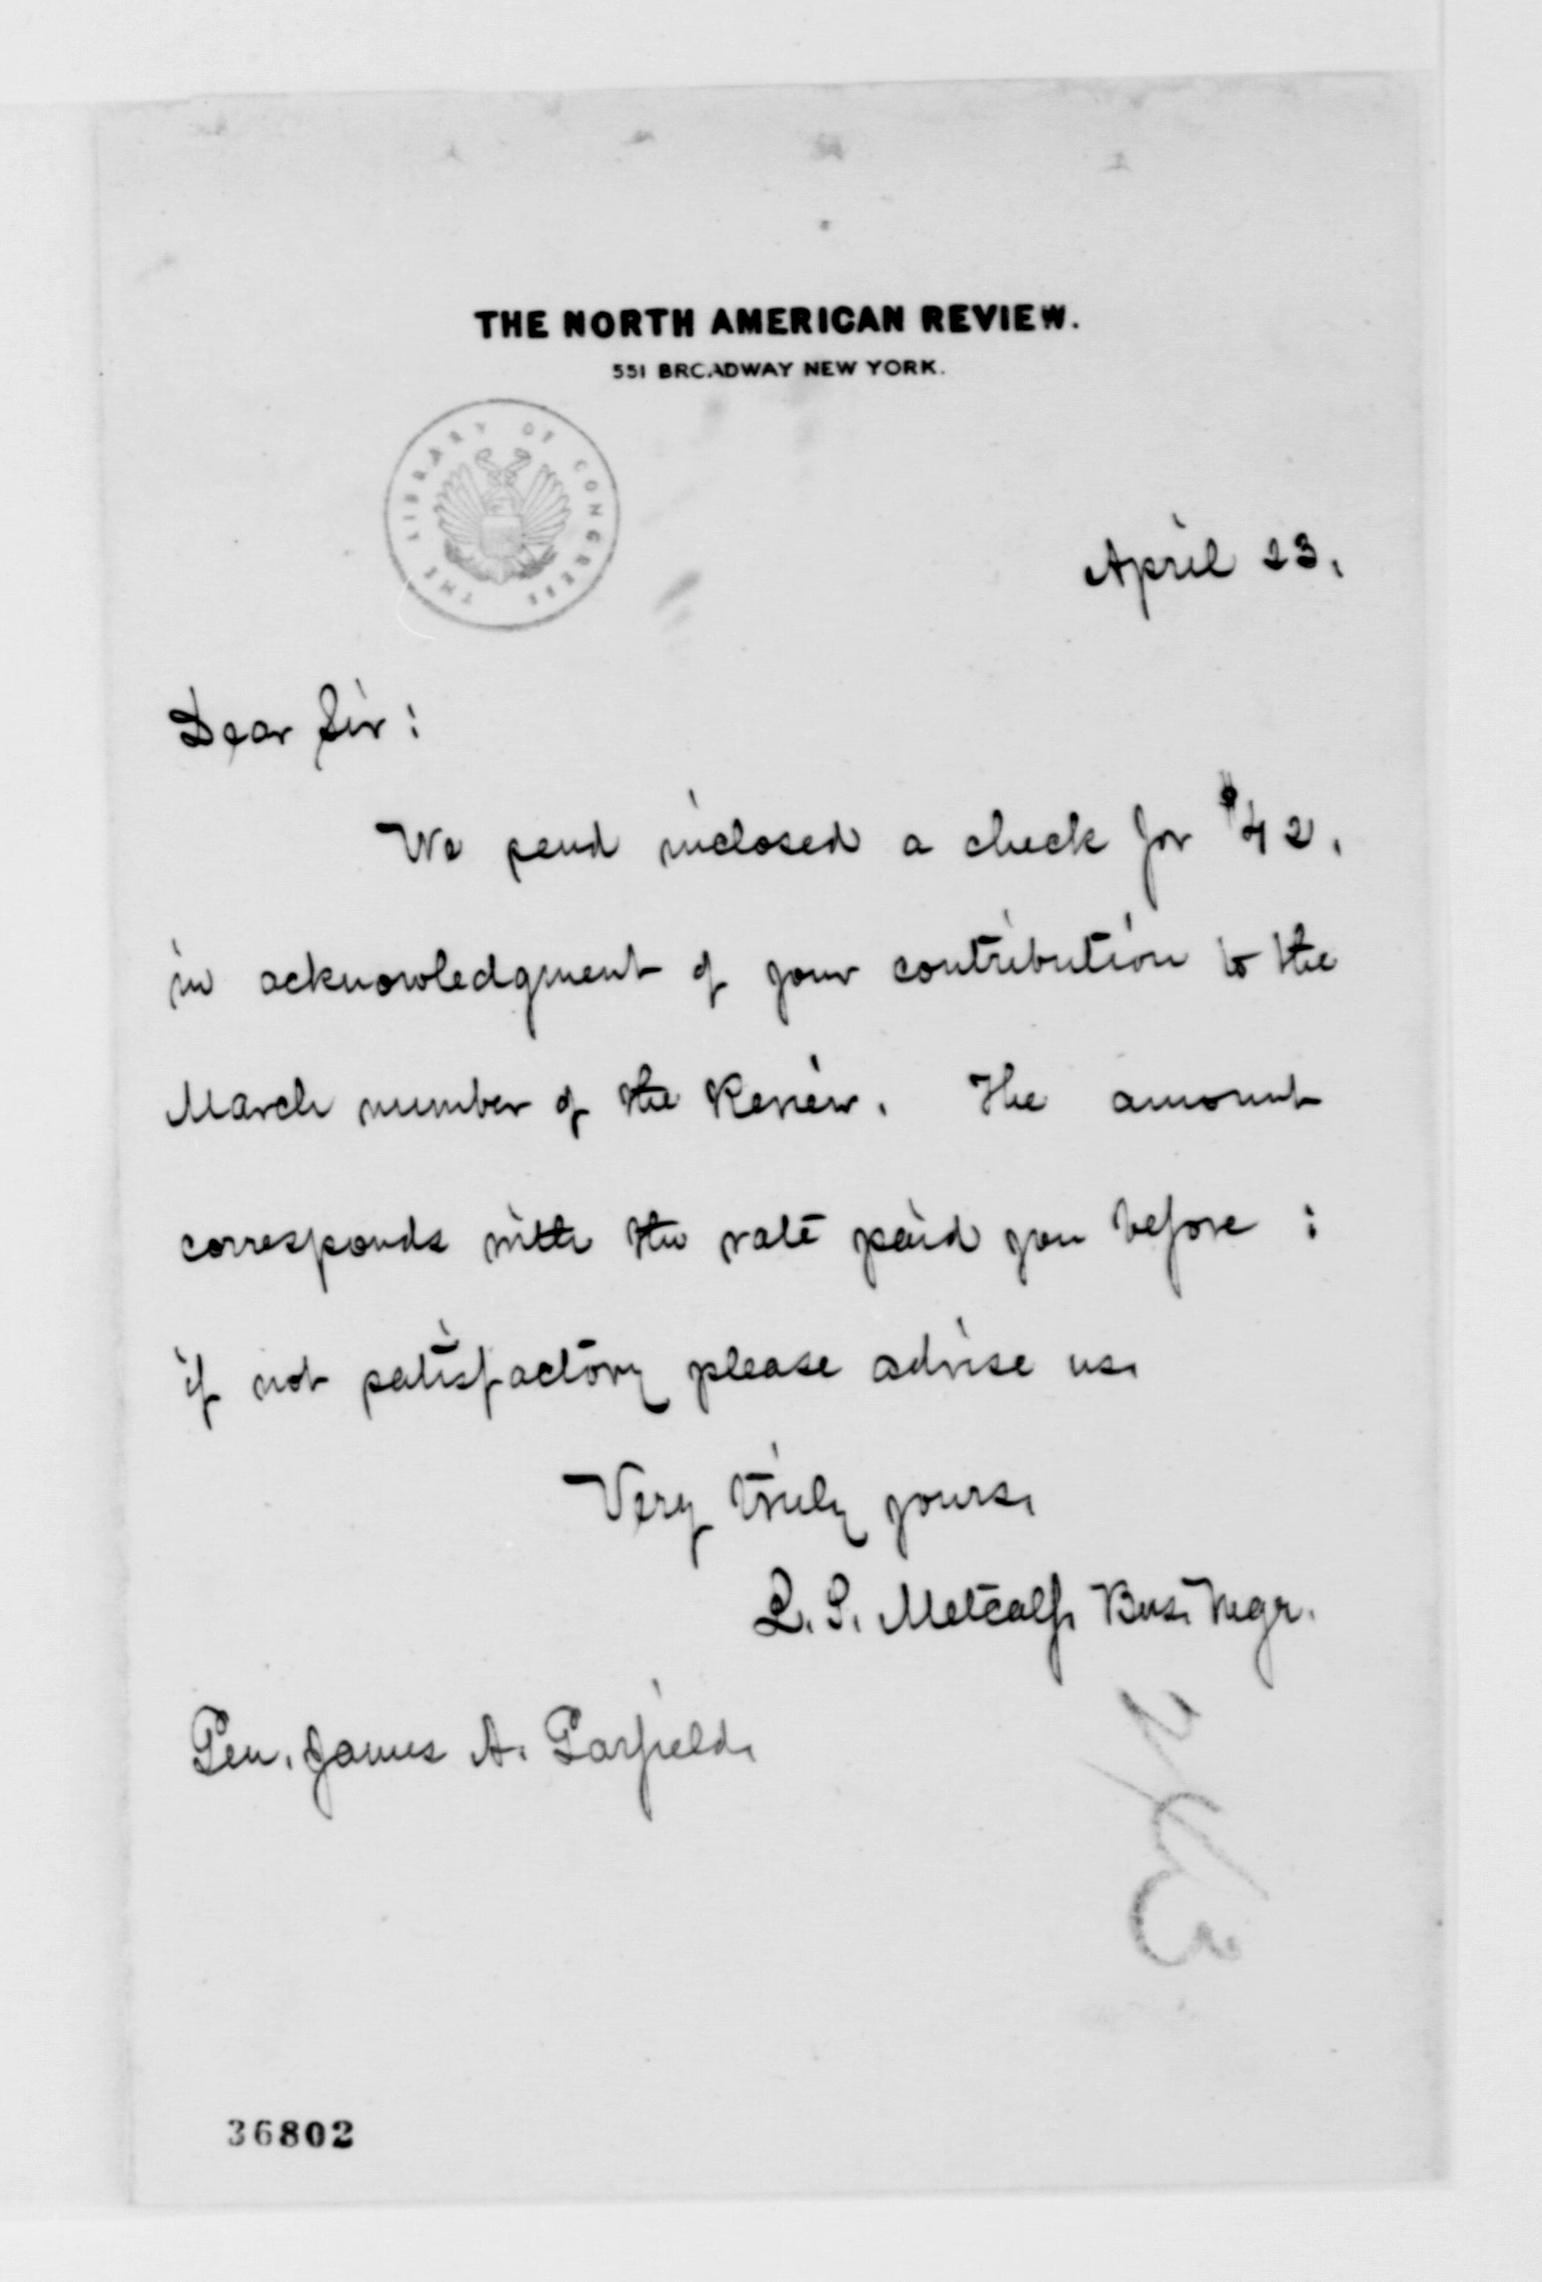 THE NORTH AMERICAN REVIEW.
551 BROADWAY NEW YORK.
THE LIBRARY OF CONGRESS
April 23.
Dear Sir:
We send inclosed a check for $42.
in acknowledgment of your contribution to the
March number of the Review. The amount
corresponds with the rate paid you before :
if not satisfactory please advise us.
Very truly yours,
L. S. Metcalf, Bus. Mgr.
Gen. James A. Garfield,
36802